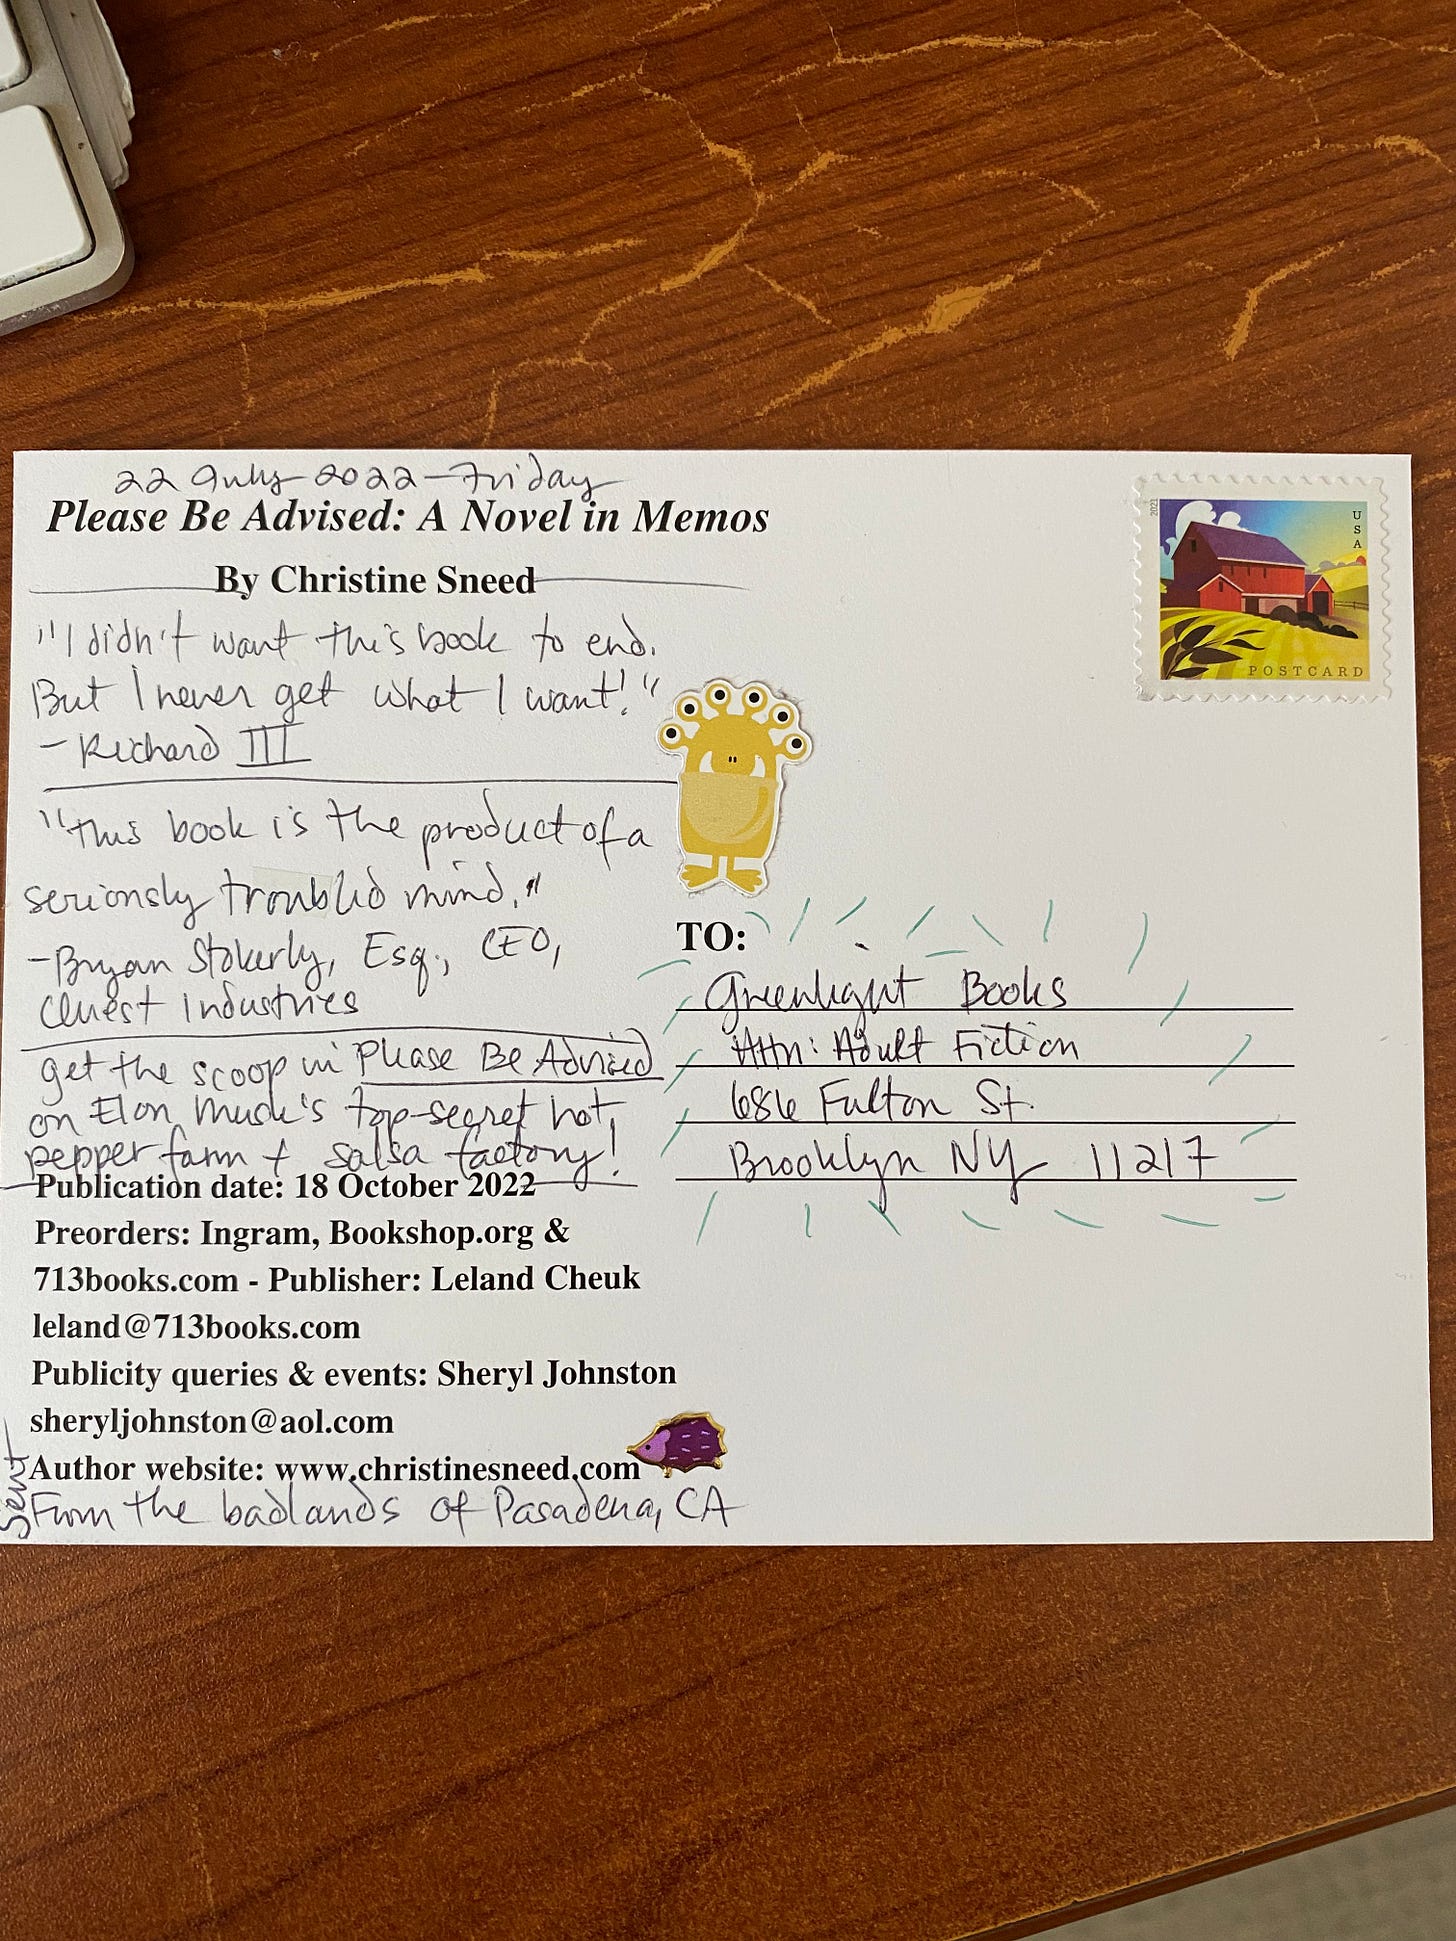 22 July 2022 - Friday
Please Be Advised: A Novel in Memos
By Christine Sneed
"I didn't want this book to end.
But I never get what I want!"
- Richard III
"This book is the product of a
seriously troubled mind."
- Bryan Stokerly, Esq., CEO,
Quest Industries
get the scoop in Please Be Advised
on Elon Musk's top-secret hot
pepper farm + salsa factory!
Publication date: 18 October 2022
Preorders: Ingram, Bookshop.org &
713books.com - Publisher: Leland Cheuk
leland@713books.com
Publicity queries & events: Sheryl Johnston
sheryljohnston@aol.com
Author website: www.christinesneed.com
Sent From the badlands of Pasadena, CA
2021
USA
POSTCARD
TO:
Greenlight Books
Attn: Adult Fiction
686 Fulton St.
Brooklyn NY 11217